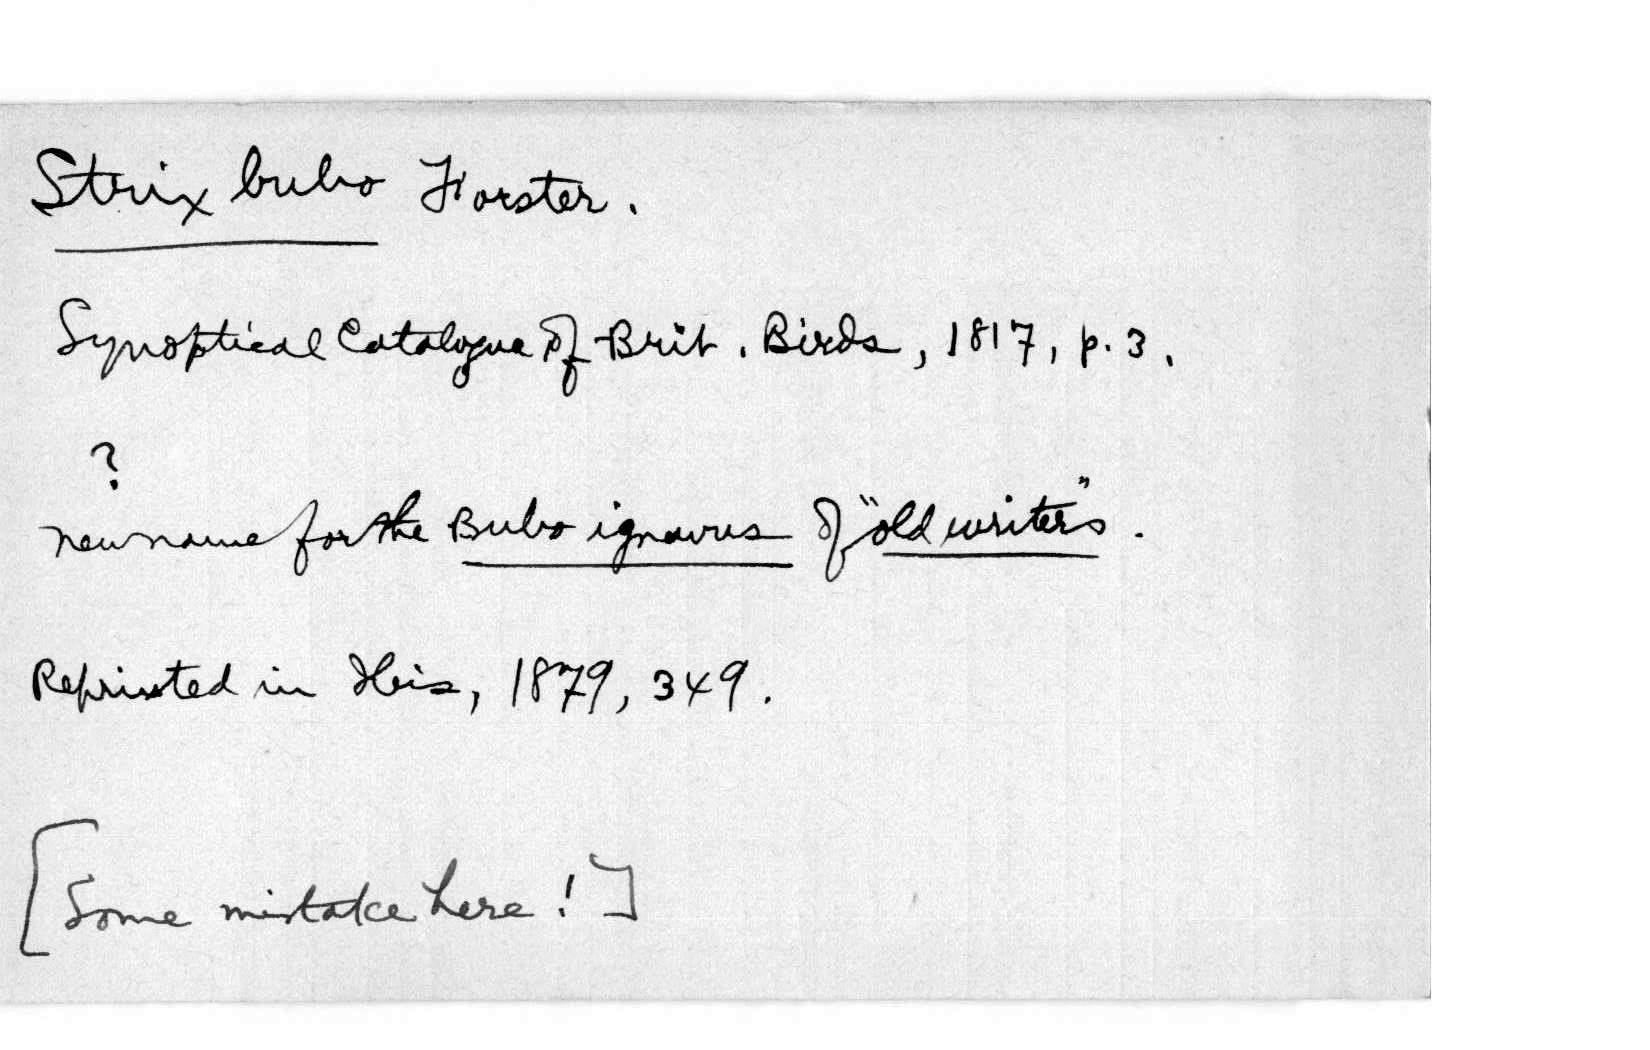 Strix bubo Forster.
Synoptical Catalogue of Brit. Birds, 1817, p. 3.
?
new name for the Bubo ignavus of "old writers".
Reprinted in Ibis, 1879, 349.
[Some mistake here!]